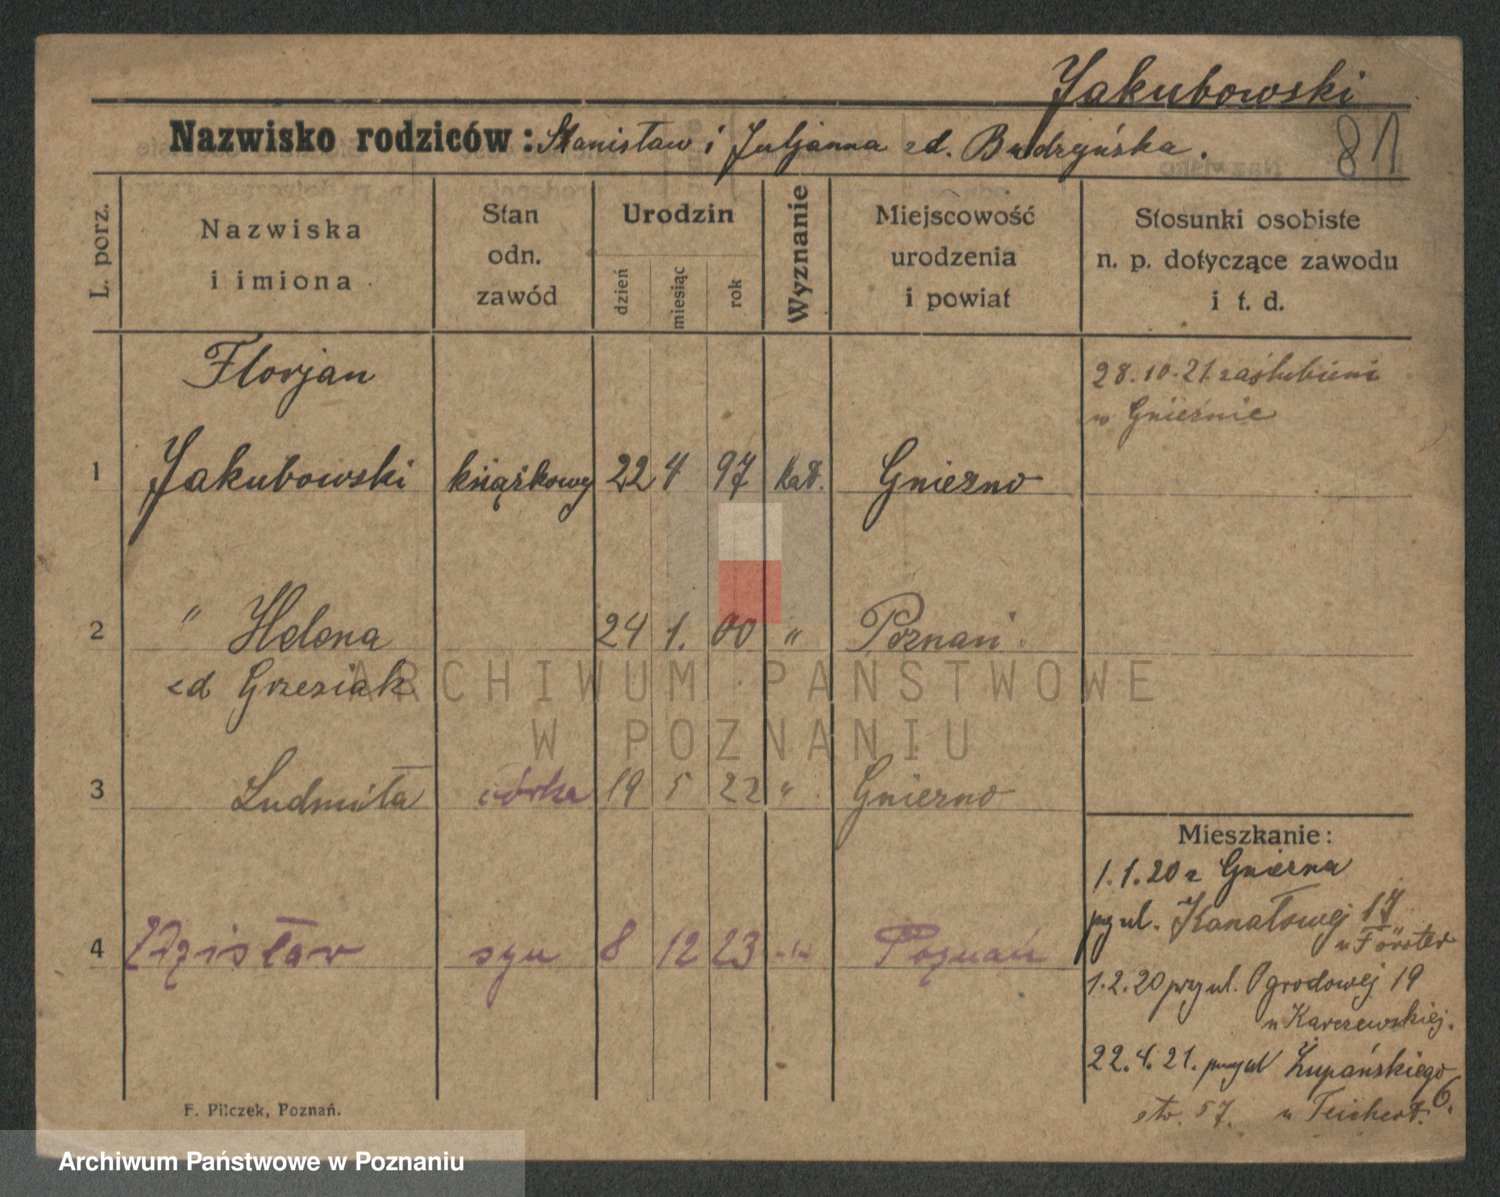 Jakubowski
Nazwisko rodziców: Stanisław i Juljanna zd. Budzyńska.
81
L. porz.
Nazwiska i imiona
Stan odn. zawód
Urodzin
dzień
miesiąc
rok
Wyznanie
Miejscowość urodzenia i powiat
Stosunki osobiste n. p. dotyczące zawodu i t. d.
Florjan
28.10.21 zaślubieni
w Gnieźnie
1 Jakubowski książkowy 22 4 97 kat. Gniezno
2 " Helena 24 1. 00 " Poznań.
zd Grzesiak
ARCHIWUM PAŃSTWOWE
W POZNANIU
3 Ludmiła córka 19 5 22 " Gniezno
4 Zdzisław syn 8 12 23 -"- Poznań
Mieszkanie:
1.1.20 z Gniezna
przy ul. Kanałowej 17
u Förster
1.2.20 przy ul. Ogrodowej 19
u Karczewskiej.
22.4.21. przy ul Żupańskiego 6.
str. 57. u Teichert.
F. Pilczek, Poznań.
Archiwum Państwowe w Poznaniu